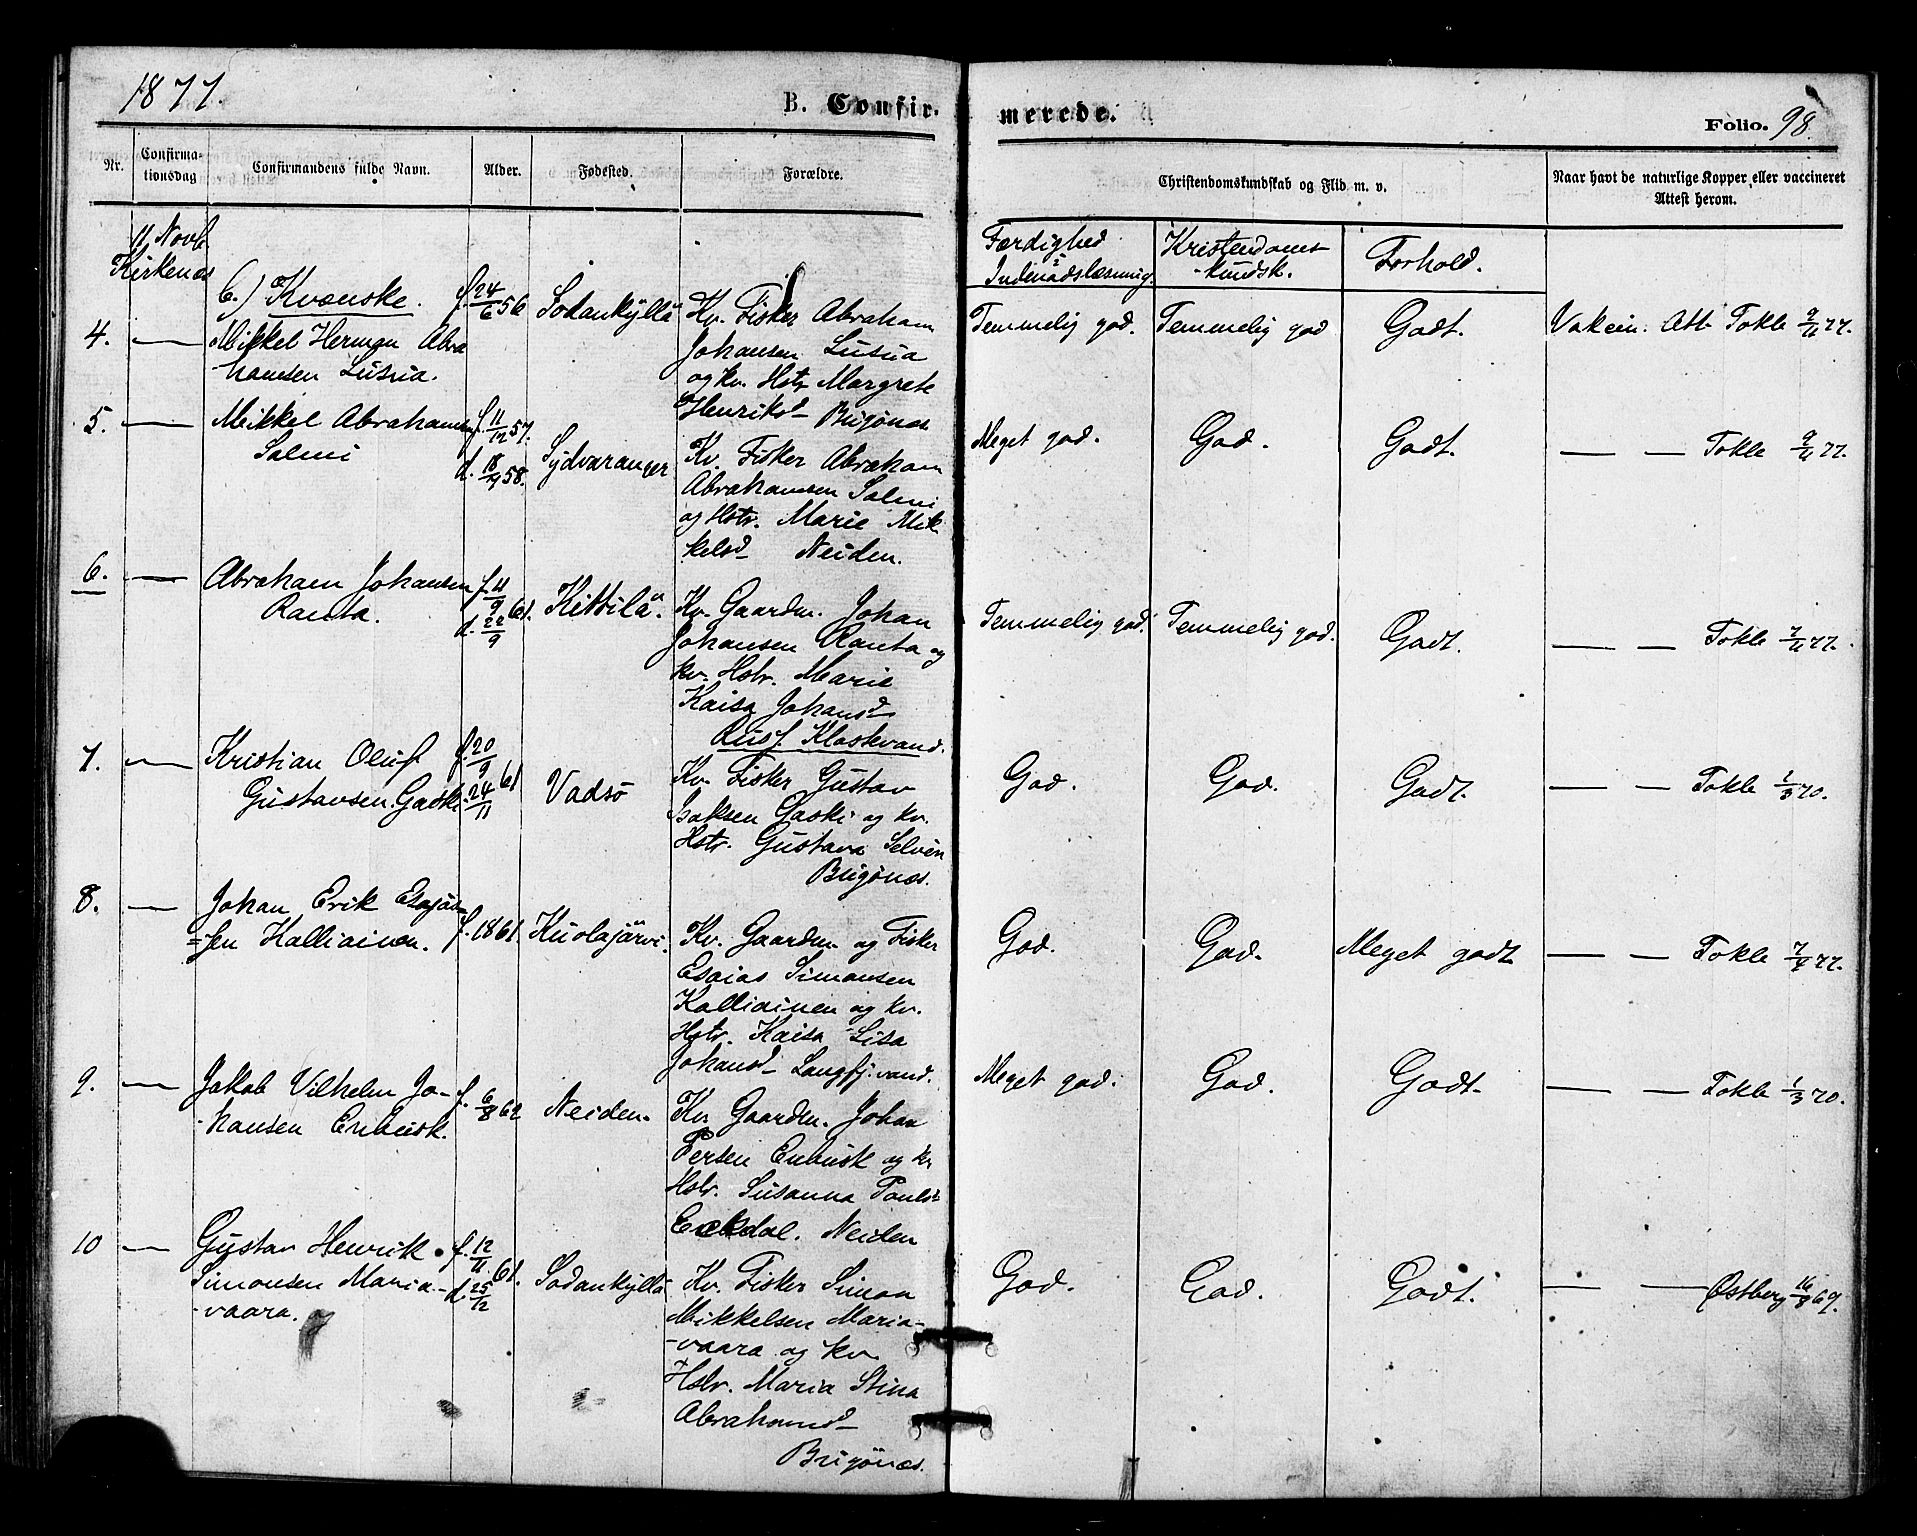 1877.
B. Confir-
merede.
Folio. 98.
Nr.
Confirma-
tionsdag
Confirmandens fulde Navn.
Alder.
Fødested.
Forældre.
Christendomskundskab og Flid m. v.
Naar havt de naturlige Kopper eller vaccineret
Attest herom.
11 Novb
Kirkenes
Færdighed
i
Indenadslæsning.
Kristendoms
-kundsk.
Forhold.
6.) Kvænske.
4. — Mikkel Herman Abra
hamsen Lusua.
f. 24/6 56
Sodankylä
Kv. Fisker Abraham
Johansen Lusua
og kv. Hstr Margrete
Henriksd
Bugønes
Temmelig god.
Temmelig god
Godt.
Vakcin. Att. Tokle 9/11 77.
5. — Mikkel Abrahamsen
Salmi
f. 11/12 57.
d. 18/4 58.
Sydvaranger
Kv. Fisker Abraham
Abrahamsen Salmi
og Hstr. Marie Mik
kelsd Neiden.
Meget god.
God.
Godt.
— — Tokle 9/11 77.
6. — Abraham Johansen
Ranta.
f. 4/9 61.
d. 22/9
Kittilä.
Kv. Gaardm. Johan
Johansen Ranta og
kv. Hstr. Marie
Kaisa Johansd
Rusf. Klostervand.
Temmelig god.
Temmelig god.
Godt.
— — Tokle 7/11 77.
7. — Kristian Oluf
Gustavsen Gaski
f. 20/9 61
24/11
Vadsö
Kv. Fisker Gustav
Isaksen Gaski og kv.
Hstr. Gustava Selvin
Bugønes.
God.
God.
Godt.
— — Tokle 1/3 70.
8. — Johan Erik Esajas
=sen Kalliainen.
f. 1861.
Kuolajärvi.
Kv. Gaardm og Fisker
Esaias Simonsen
Kalliainen og kv.
Hstr. Kaisa Lisa
Johansd Langfj.vand.
God.
God.
Meget godt
— — Tokle 7/9 77.
9. — Jakob Vilhelm Jo-
-hansen Enbusk.
f. 6/8 62
Neiden.
Kv. Gaardm. Johan
Persen Enbusk og kv
Hstr. Susanna Paulsd
Eckdal. Neiden
Meget god.
God.
Godt.
— — Tokle 1/3 70.
10 — Gustav Henrik
Simonsen Maria-
-vaara.
f. 12/11 61.
d. 25/12
Sodankylä
Kv. Fisker Simon
Mikkelsen Maria-
-vaara og kv
Hstr. Maria Stina
Abrahamsd
Bugønes.
God.
God.
Godt.
— — Østberg 16/8 69.